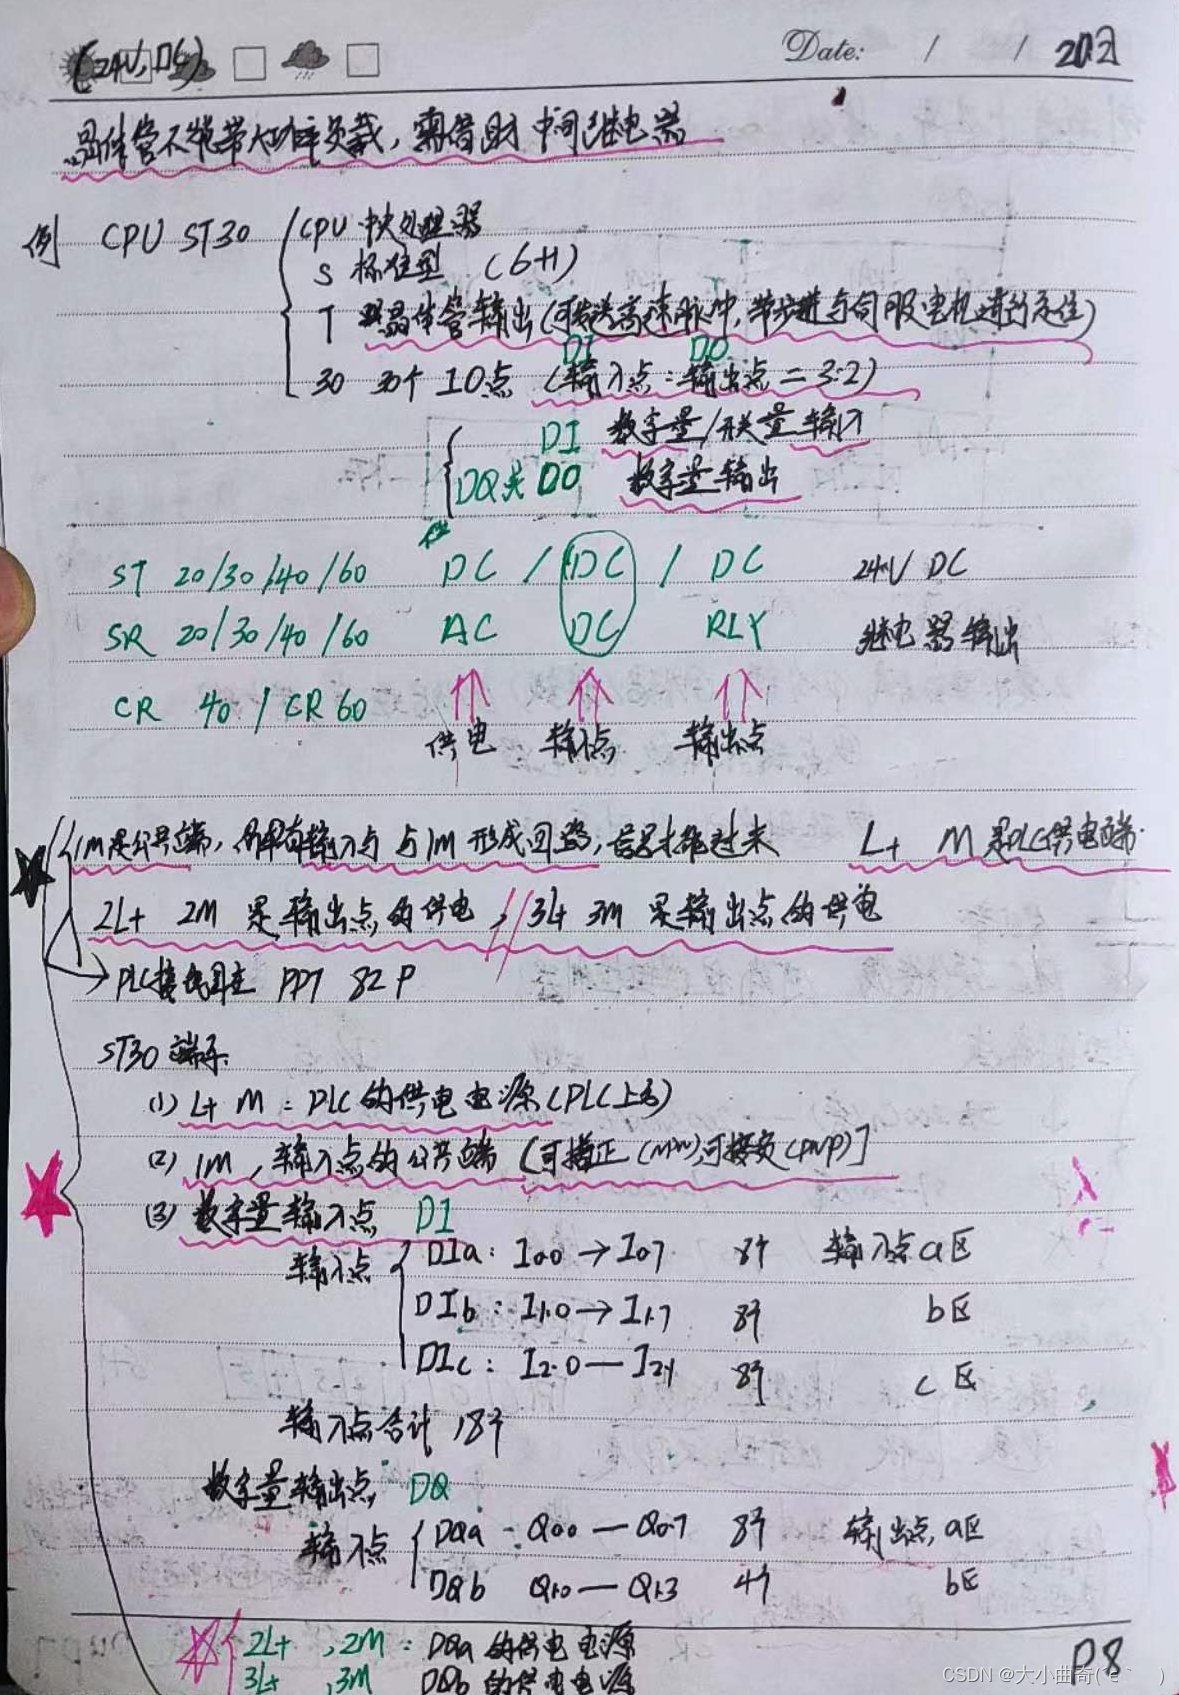 (24V,DC) Date: / / 202
晶体管不能带大功率负载，需借助中间继电器
例 CPU ST30 CPU 中央处理器
S 标准型 (6H)
T 晶体管输出(可发送高速脉冲,带步进与伺服电机进行定位)
DI DO
30 30个 IO点 (输入点:输出点=3:2)
DI 数字量/开关量输入
DQ或DO 数字量输出
ST 20/30/40/60 DC / DC / DC 24V DC
SR 20/30/40/60 AC DC RLY 继电器输出
CR 40 / CR60
供电 输入点 输出点
1M是公共端, 所有输入点与1M形成回路,信号才能过来 L+ M是PLC供电端
2L+ 2M 是输出点的供电, 3L+ 3M 是输出点的供电
PLC接线图在 PPT 82P
ST30端子
(1) L+ M: PLC的供电电源(PLC上方)
(2) 1M, 输入点的公共端 [可接正(NPN),可接负(PNP)]
(3) 数字量输入点 DI
输入点 DIa: I0.0→I0.7 8个 输入点a区
DIb: I1.0→I1.7 8个 b区
DIc: I2.0—I2.1 8个 c区
输入点合计 18个
数字量输出点 DQ
输入点 DQa: Q0.0—Q0.7 8个 输出点,a区
DQb Q1.0—Q1.3 4个 b区
2L+ ,2M: DQa的供电电源
3L+ ,3M DQb的供电电源
P8
CSDN @大小曲奇(